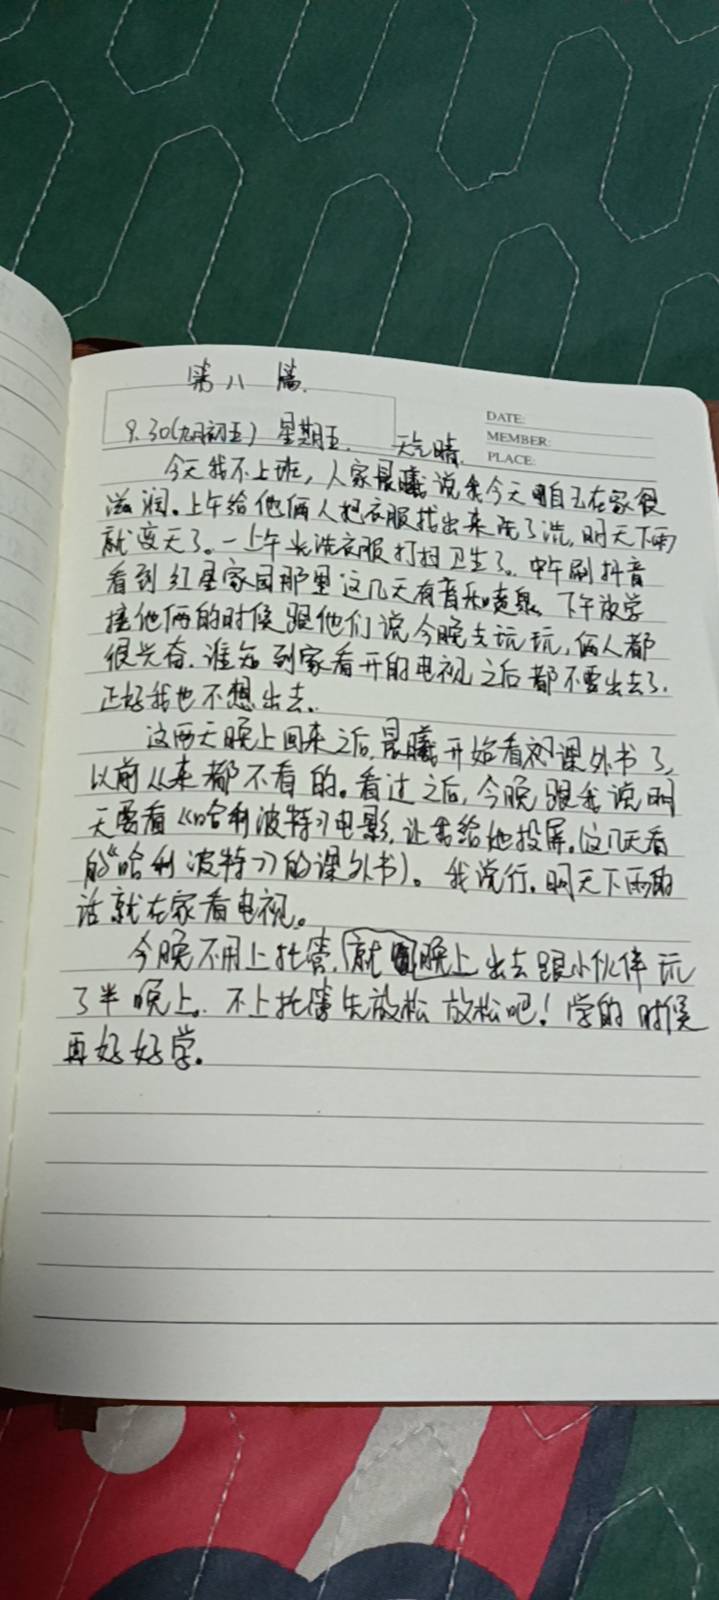 第八篇.
DATE:
MEMBER:
PLACE:
9.30(九月初五) 星期五. 天气晴.
今天我不上班,人家晨曦说我今天自己在家很
滋润。上午给他俩人把衣服找出来洗了洗,明天下雨
就变天了。一上午光洗衣服打扫卫生了。中午刷抖音
看到红星家园那里这几天有音乐喷泉。下午放学
接他俩的时候跟他们说今晚去玩玩,俩人都
很兴奋.谁知到家看开的电视之后都不要出去了.
正好我也不想出去。
这两天晚上回来之后,晨曦开始看课外书了,
以前从来都不看的。看过之后,今晚跟我说明
天要看《哈利波特》电影,让我给她投屏.(这几天看
的《哈利波特》的课外书)。我说行.明天下雨的
话就在家看电视。
今晚不用上托管,就晚上出去跟小伙伴玩
了半晚上。不上托管先放松放松吧!学的时候
再好好学。